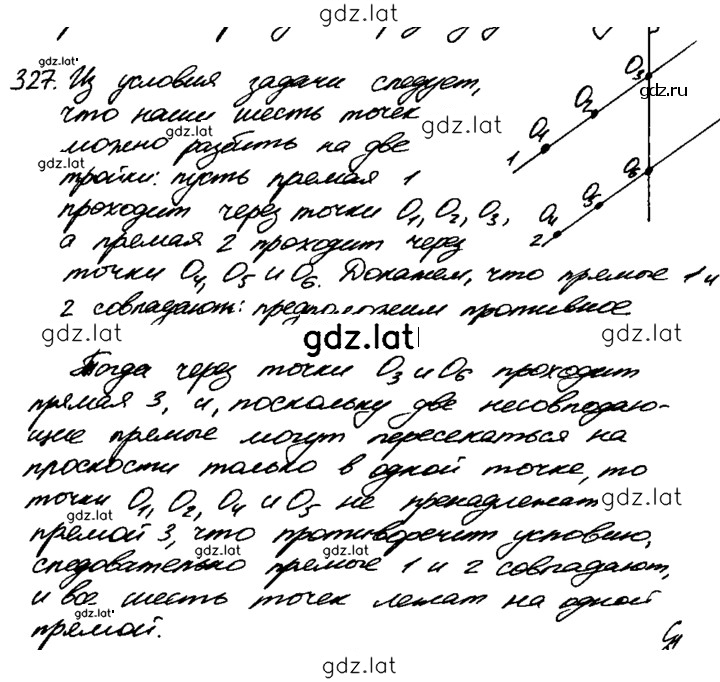 gdz.lat
gdz.lat
327. Из условия задачи следует,
что наши шесть точек
gdz.lat
можно разбить на две
gdz.lat
тройки: пусть прямая 1
проходит через точки O1, O2, O3,
а прямая 2 проходит через
точки O4, O5 и O6. Докажем, что прямые 1 и
2 совпадают: предположим противное
O1
O2
O3
gdz.ru
gdz.lat
1
O4
O5
O6
2
gdz.lat
gdz.lat
gdz.lat
Тогда через точки O3 и O6 проходит
прямая 3, и, поскольку две несовпадаю-
щие прямые могут пересекаться на
плоскости только в одной точке, то
точки O1, O2, O4 и O5 не принадлежат
gdz.lat
gdz.lat
прямой 3, что противоречит условию,
gdz.lat
gdz.lat
gdz.lat
следовательно прямые 1 и 2 совпадают,
и все шесть точек лежат на одной
gdz.lat
прямой.
gdz.lat